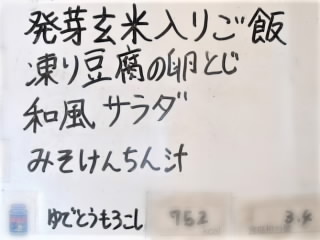 発芽玄米入りご飯
凍り豆腐の卵とじ
和風サラダ
みそけんちん汁
ゆでとうもろこし 752 3.4